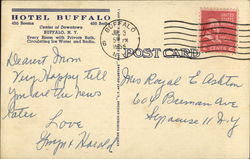 HOTEL BUFFALO
450 Rooms 450 Baths
Center of Downtown
BUFFALO, N. Y.
Every Room with Private Bath,
Circulating Ice Water and Radio.
BUFFALO
N.Y.
POST CARD
CENTS
Dearest Mom
Very Happy tell
you all the news
later
Love
& Harold
Mrs Royal E Ashton
604 Avenue
Syracuse 11 N.Y